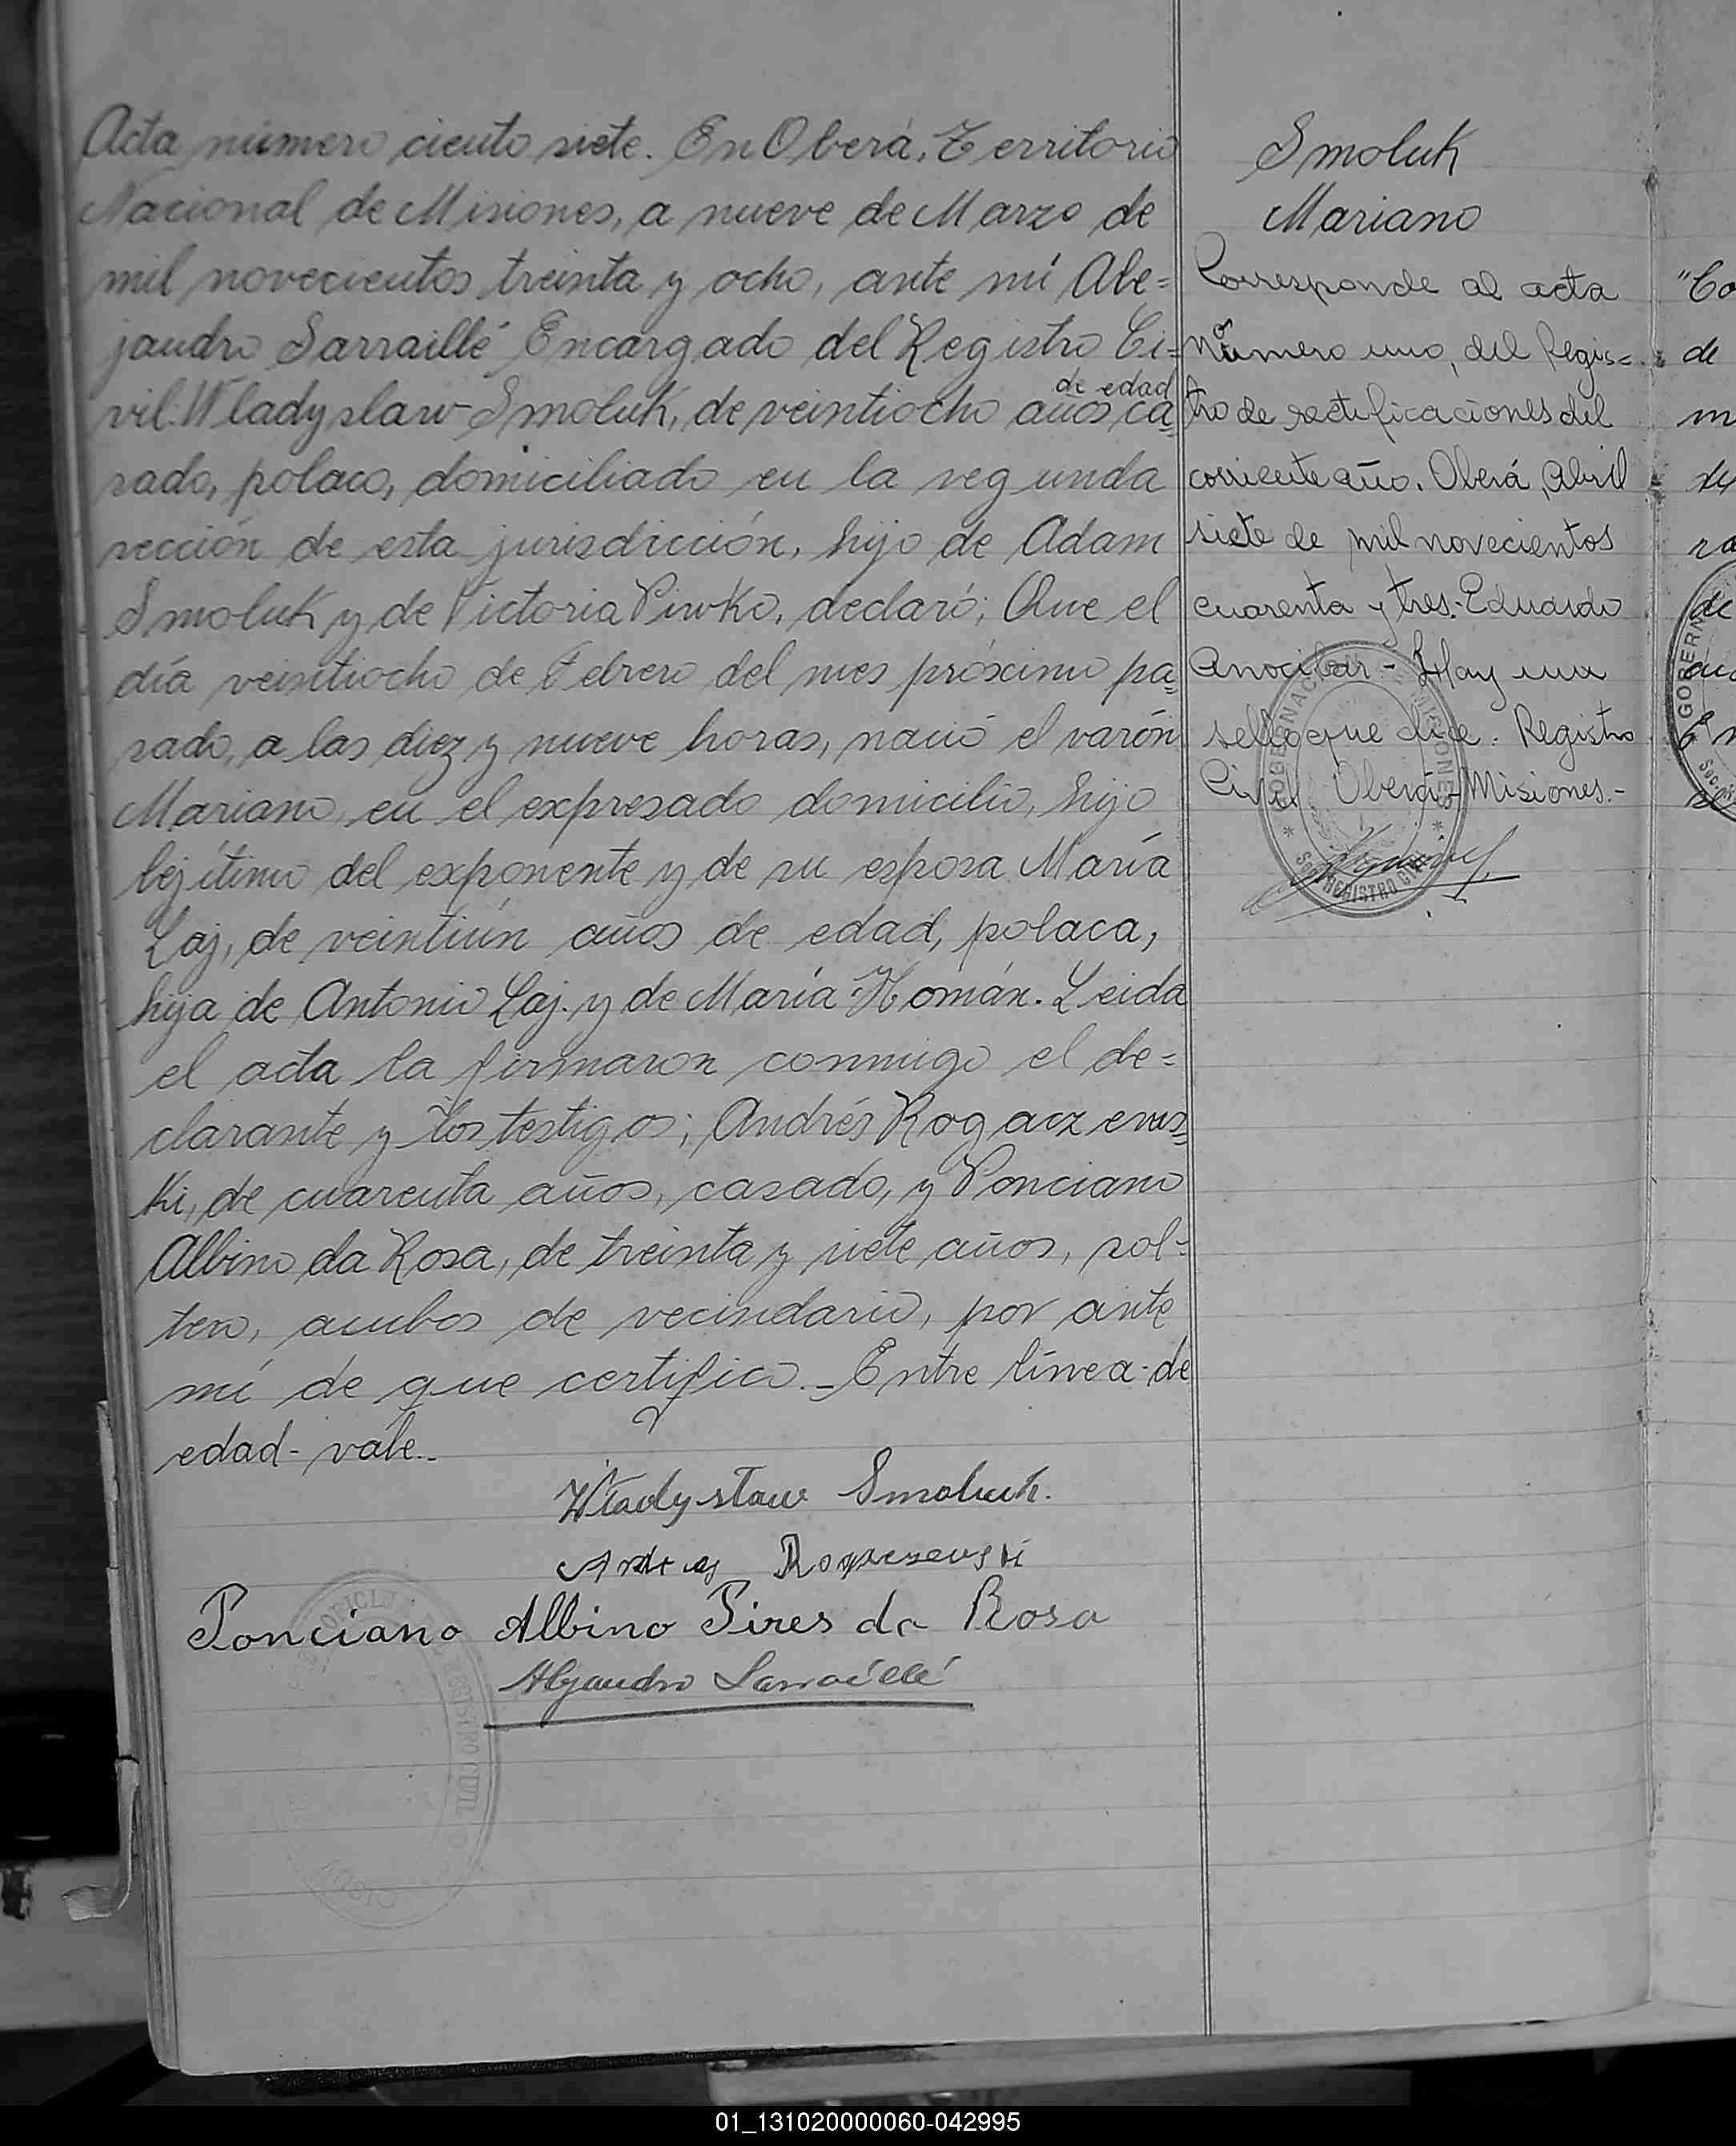 Acta número ciento siete. En Oberá, Territorio
Nacional de Misiones, a nueve de Marzo de
mil novecientos treinta y ocho, ante mí Ale=
jandro Sarraillé Encargado del Registro Ci=
vil: Wladyslaw Smoluk, de veintiocho años de edad, ca=
sado, polaco, domiciliado en la segunda
sección de esta jurisdicción, hijo de Adam
Smoluk y de Victoria Piwko, declaró; Que el
día veintiocho de Febrero del mes próximo pa=
sado, a las diez y nueve horas, nació el varón
Mariano, en el expresado domicilio, hijo
lejítimo del exponente y de su esposa María
Laj, de veintiún años de edad, polaca,
hija de Antonio Laj. y de María Homán. Leida
el acta la firmaron conmigo el de=
clarante y los testigos; Andrés Rogaczews=
ki, de cuarenta años, casado, y Ponciano
Albino da Rosa, de treinta y siete años, sol-
tero, ambos de vecindario, por ante
mí de que certifico._ Entre línea-de
edad-vale._
Władysław Smoluk.
Rogaczewski
Ponciano Albino Pires da Rosa
Alejandro Sarraillé
Smoluk
Mariano
Corresponde al acta
número uno, del Regis=
tro de rectificaciones del
corriente año. Oberá, Abril
siete de mil novecientos
cuarenta y tres.- Eduardo
Anocibar - Hay un
sello que dice: Registro
Civil Oberá-Misiones.-
GOBERNACION MISIONES
REGISTRO CIVIL
REGISTRO CIVIL
"Co
de
m
GOBERN
01_131020000060-042995